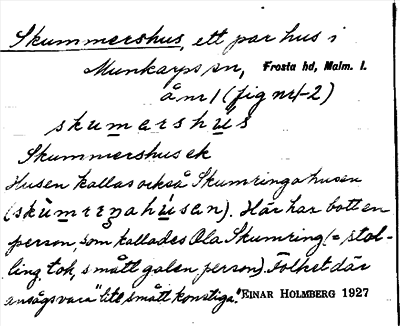 Skummershus, ett par hus i
Munkarps sn, Frosta hd, Malm. l.
å nr 1 (fig nr 1-2)
skumərshús
Skummershusek
Husen kallas också Skumringahusen
(skùmrıŋahúsen). Här har bott en
person, som kallades Ola Skumring (= stol-
ling, tok, smått galen person). Folket där
ansågs vara "lite smått konstiga." EINAR HOLMBERG 1927